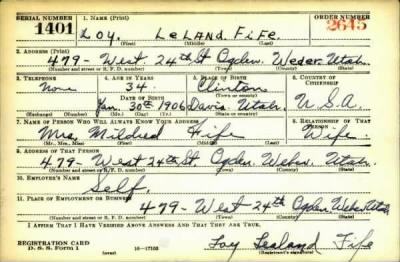 SERIAL NUMBER 1. NAME (Print) ORDER NUMBER
1401 Loy. LeLand. Fife. 2645
(First) (Middle) (Last)
2. ADDRESS (Print)
479- West. 24th St Ogden. Weber. Utah.
(Number and street or R. F. D. number) (Town) (County) (State)
3. TELEPHONE 4. AGE IN YEARS 5. PLACE OF BIRTH 6. COUNTRY OF CITIZENSHIP
None 34 Clinton
DATE OF BIRTH (Town or county)
Jan. 30th 1906 Davis. Utah. U.S.A.
(Exchange) (Number) (Mo.) (Day) (Yr.) (State or country)
7. NAME OF PERSON WHO WILL ALWAYS KNOW YOUR ADDRESS 8. RELATIONSHIP OF THAT PERSON
Mrs. Mildred Fife Wife.
(Mr., Mrs., Miss) (First) (Middle) (Last)
9. ADDRESS OF THAT PERSON
479- West 24th St. Ogden. Weber. Utah.
(Number and street or R. F. D. number) (Town) (County) (State)
10. EMPLOYER'S NAME
Self.
11. PLACE OF EMPLOYMENT OR BUSINESS
479- West 24th Ogden. Weber. Utah.
(Number and street or R. F. D. number) (Town) (County) (State)
I AFFIRM THAT I HAVE VERIFIED ABOVE ANSWERS AND THAT THEY ARE TRUE.
REGISTRATION CARD
D. S. S. Form 1 (over) 16-17105 Loy Lealand Fife